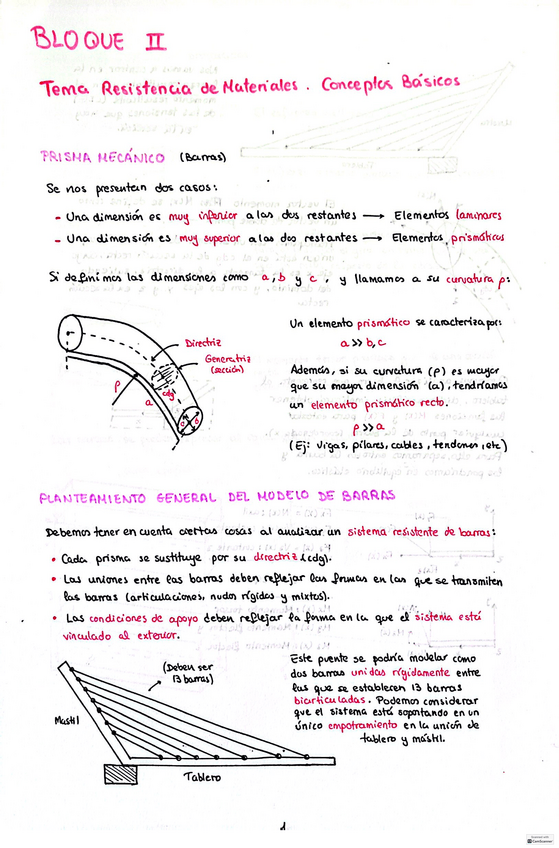 BLOQUE II
Tema Resistencia de Materiales. Conceptos Básicos
PRISMA MECÁNICO (Barras)
Se nos presentan dos casos:
- Una dimensión es muy inferior a las dos restantes → Elementos laminares
- Una dimensión es muy superior a las dos restantes → Elementos prismáticos
Si definimos las dimensiones como a, b y c, y llamamos a su curvatura ρ:
Directriz
Generatriz
(sección)
cdg
ρ
a
c
b
Un elemento prismático se caracteriza por:
a >> b, c
Además, si su curvatura (ρ) es mayor
que su mayor dimensión (a), tendríamos
un elemento prismático recto.
ρ >> a
(Ej: vigas, pilares, cables, tendones, etc)
PLANTEAMIENTO GENERAL DEL MODELO DE BARRAS
Debemos tener en cuenta ciertas cosas al analizar un sistema resistente de barras:
• Cada prisma se sustituye por su directriz (cdg).
• Las uniones entre las barras deben reflejar las formas en las que se transmiten
las barras (articulaciones, nudos rígidos y mixtos).
• Las condiciones de apoyo deben reflejar la forma en la que el sistema está
vinculado al exterior.
(Deben ser
13 barras)
Mastil
Tablero
Este puente se podría modelar como
dos barras unidas rígidamente entre
las que se establecen 13 barras
biarticuladas. Podemos considerar
que el sistema está soportando en un
único empotramiento en la unión de
tablero y mástil.
1
CamScanner